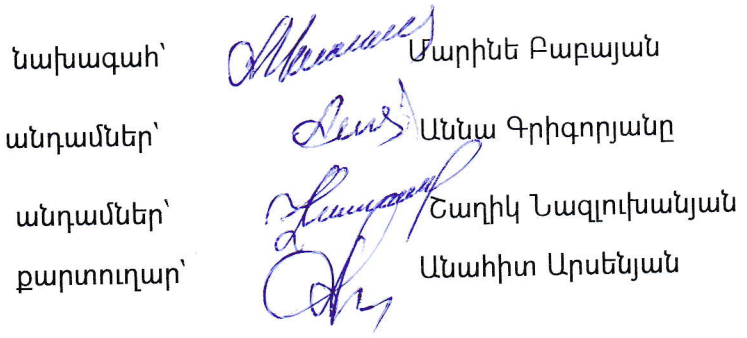 նախագահ՝ Մարինե Բաբայան
անդամներ՝ Աննա Գրիգորյանը
անդամներ՝ Շաղիկ Նազլուխանյան
քարտուղար՝ Անահիտ Արսենյան